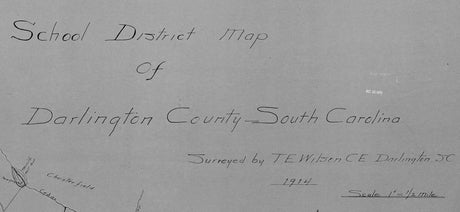 School District Map
Of
Darlington County-South Carolina
Surveyed by T E Wilson C E Darlington SC
1914
Scale 1"=1/2 mile
Chesterfield